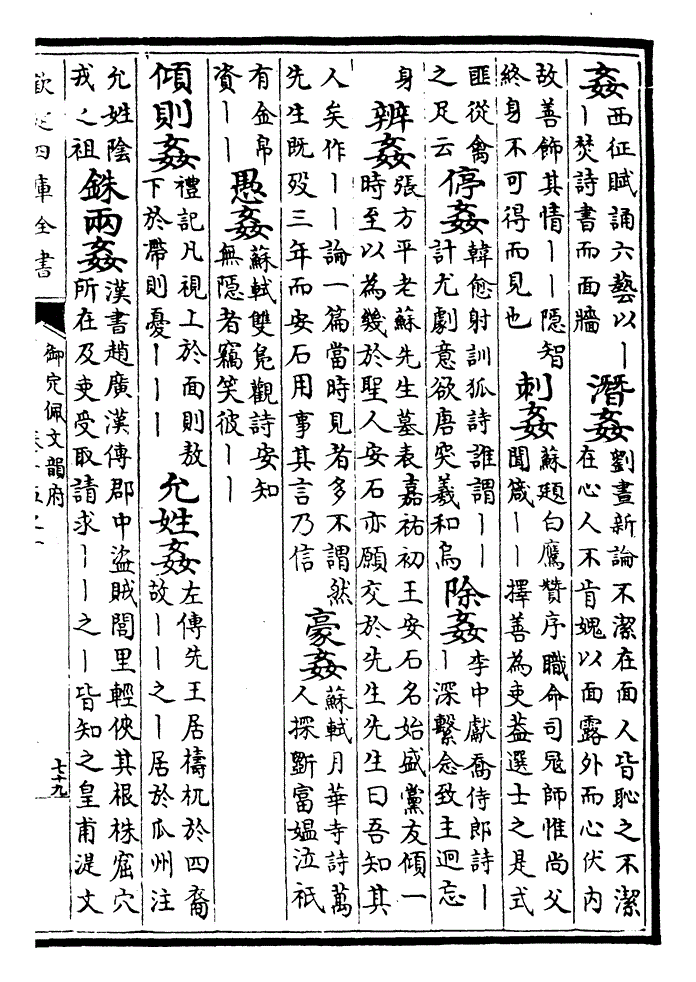 姦西征賦誦六藝以｜｜焚詩書而面牆潛姦劉晝新論不潔在面人皆恥之不潔在心人不肯媿以面露外而心伏内
故善飾其情｜｜隠智終身不可得而見也刺姦蘇頲白鷹贊序職命司冦師惟尚父聞箴｜｜擇善為吏葢選士之是式
匪從禽之足云停姦韓愈射訓狐詩誰謂｜｜計尤劇意欲唐突羲和烏除姦李中獻喬侍郎詩｜｜深繫念致主迥忘
身辨姦張方平老蘇先生墓表嘉祐初王安石名始盛黨友傾一時至以為幾於聖人安石亦願交於先生先生曰吾知其
人矣作｜｜論一篇當時見者多不謂然先生既殁三年而安石用事其言乃信豪姦蘇軾月華寺詩萬人探斵富媪泣祇
有金帛資｜｜愚姦蘇軾雙鳬觀詩安知無隠者竊笑彼｜｜
傾則姦禮記凡視上於面則敖下於帶則憂｜｜｜允姓姦左傳先王居檮杌於四裔故｜｜之｜居於瓜州注
允姓陰戎之祖銖兩姦漢書趙廣漢傳郡中盜賊閭里輕俠其根株窟穴所在及吏受取請求｜｜之｜皆知之皇甫湜文
欽定四庫全書
御定佩文韻府
七十九